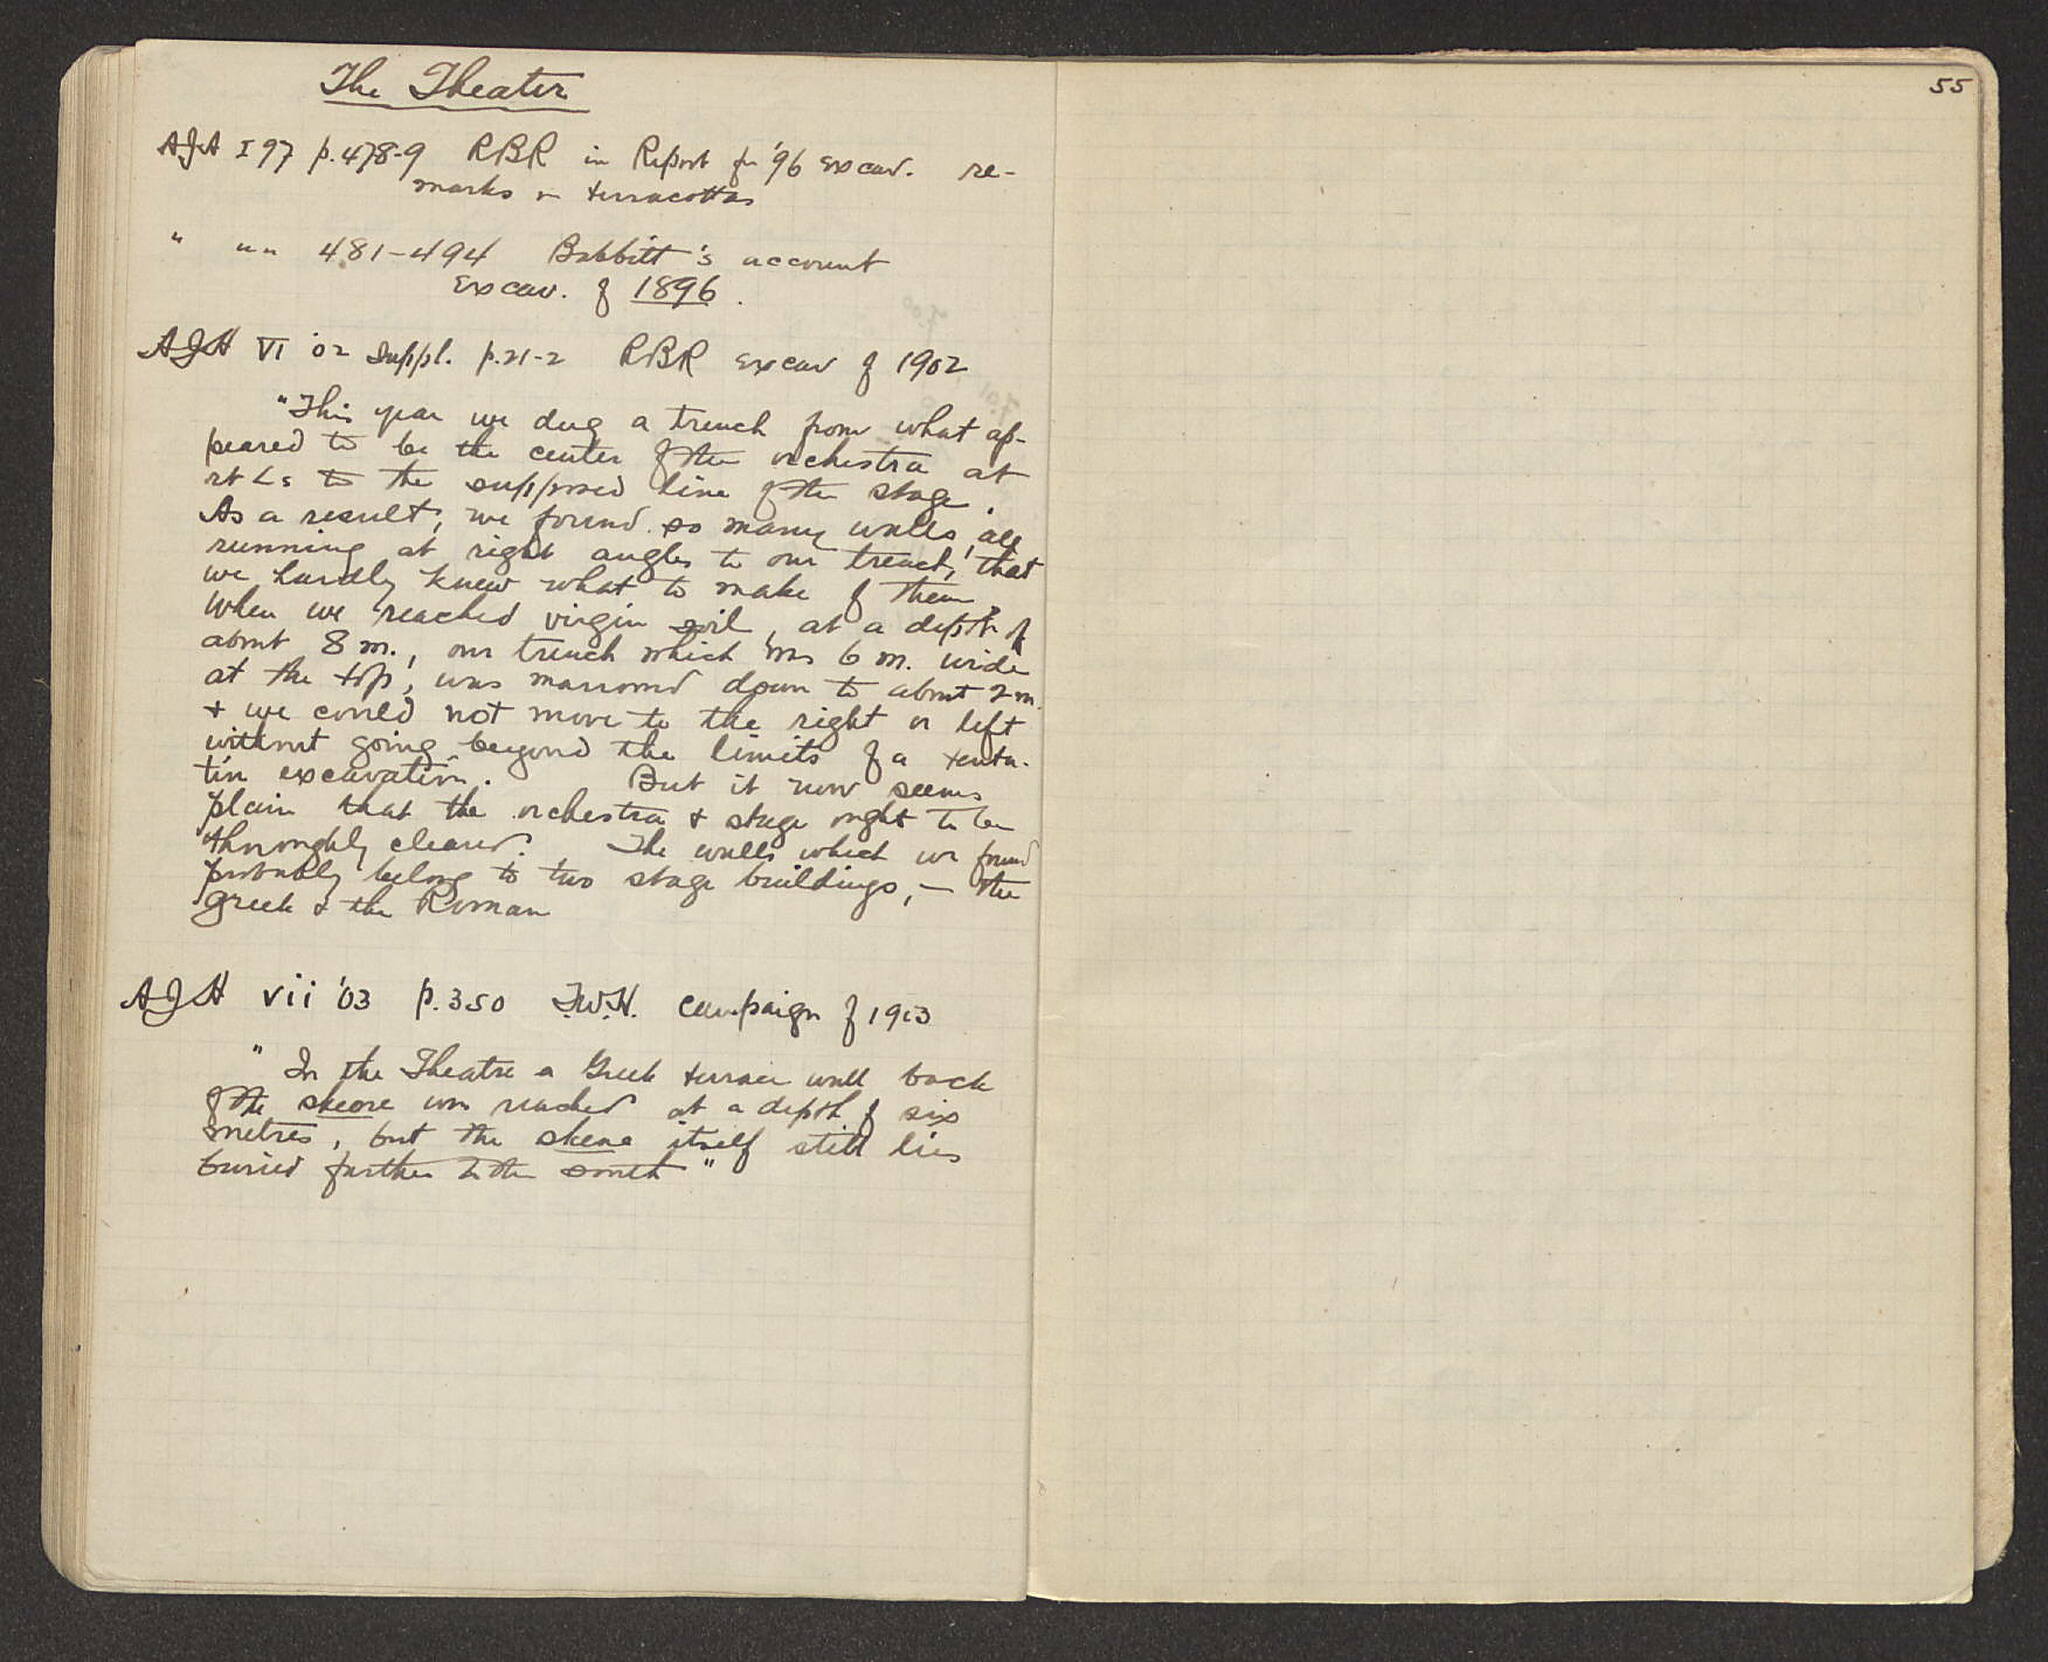 The Theater
AJA I 97 p. 478-9 RBR in Report for '96 excav. re-
marks on terracottas
" " " 481-494 Babbitt's account
excav. of 1896.
AJA VI '02 Suppl. p. 21-2 RBR excav of 1902
"This year we dug a trench from what ap-
peared to be the center of the orchestra at
rt Ls to the supposed line of the stage.
As a result, we found so many walls, all
running at right angles to our trench, that
we hardly knew what to make of them.
When we reached virgin soil, at a depth of
about 8 m., our trench which was 6 m. wide
at the top, was narrowed down to about 2 m.
+ we could not move to the right or left
without going beyond the limits of a tenta-
tive excavation. But it now seems
plain that the orchestra + stage ought to be
thoroughly cleared. The walls which we found
probably belong to two stage buildings, — the
Greek & the Roman
AJA vii '03 p. 350 T.W.H. campaign of 1903
"In the Theatre a Greek terrace wall back
of the skene was reached at a depth of six
metres, but the skene itself still lies
buried further to the south"
55